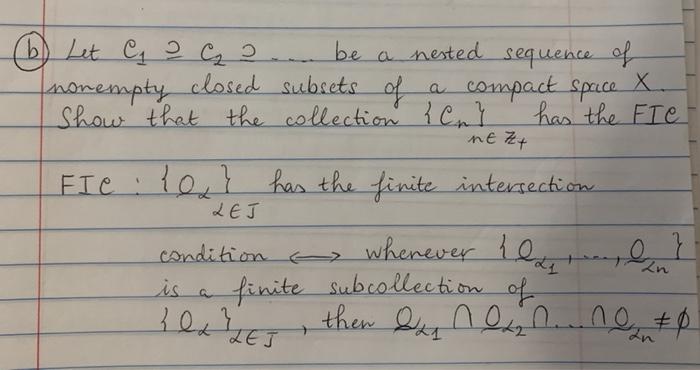 (b) Let C₁ ⊇ C₂ ⊇ .... be a nested sequence of
nonempty closed subsets of a compact space X.
Show that the collection {Cₙ} has the FIC
n∈ℤ₊
FIC : {O_α} has the finite intersection
α∈J
condition ⟷ whenever {O_α₁, ..., O_αn}
is a finite subcollection of
{O_α}_α∈J, then O_α₁ ∩ O_α₂ ∩ ... ∩ O_αn ≠ ∅